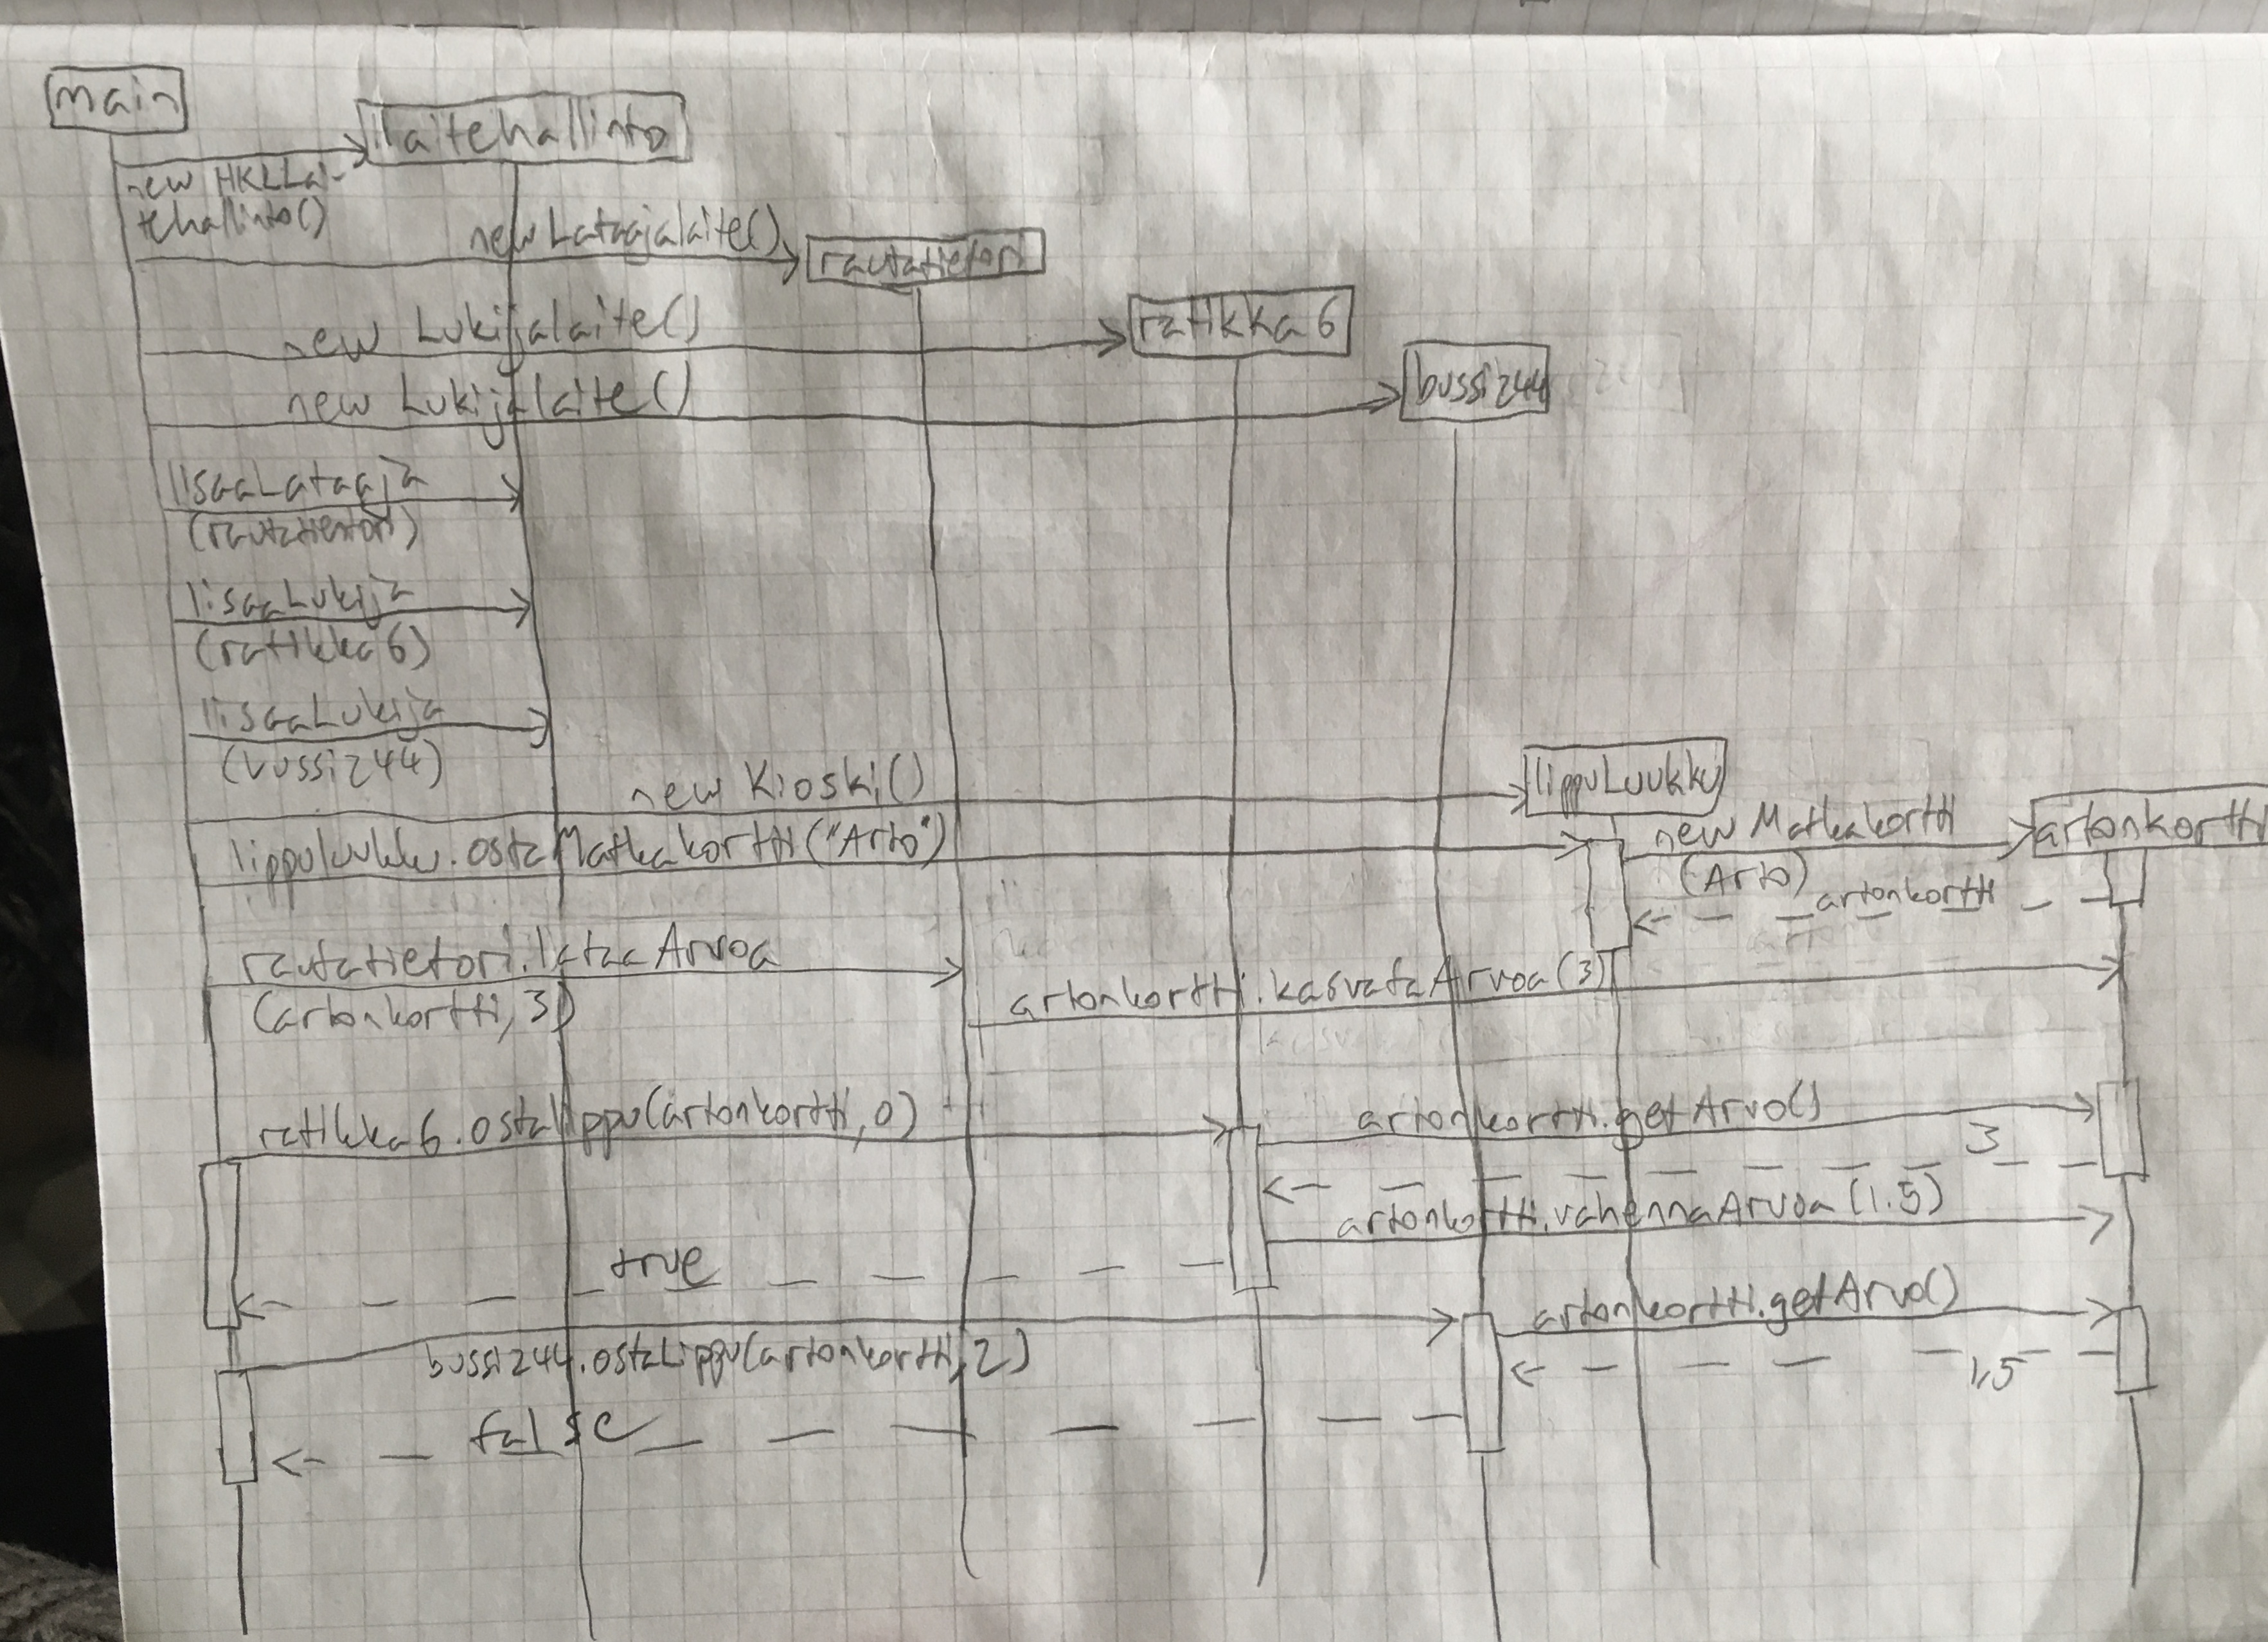 main
laitehallinto
new HKLLai-
tehallinto()
new Lataajalaite()
rautatietori
new Lukijalaite()
ratikka6
new Lukijalaite()
bussi244
lisaaLataaja
(rautatientori)
lisaaLukija
(ratikka6)
lisaaLukija
(bussi244)
new Kioski()
lippuLuukku
lippuluukku.ostaMatkakortti("Arto")
new Matkakortti
(Arto)
artonkortti
artonkortti
rautatietori.lataaArvoa
(artonkortti, 3)
artonkortti.kasvataArvoa(3)
ratikka6.ostalippu(artonkortti, 0)
artonkortti.getArvo()
3
artonkortti.vahennaArvoa(1.5)
true
bussi244.ostaLippu(artonkortti, 2)
artonkortti.getArvo()
1,5
false